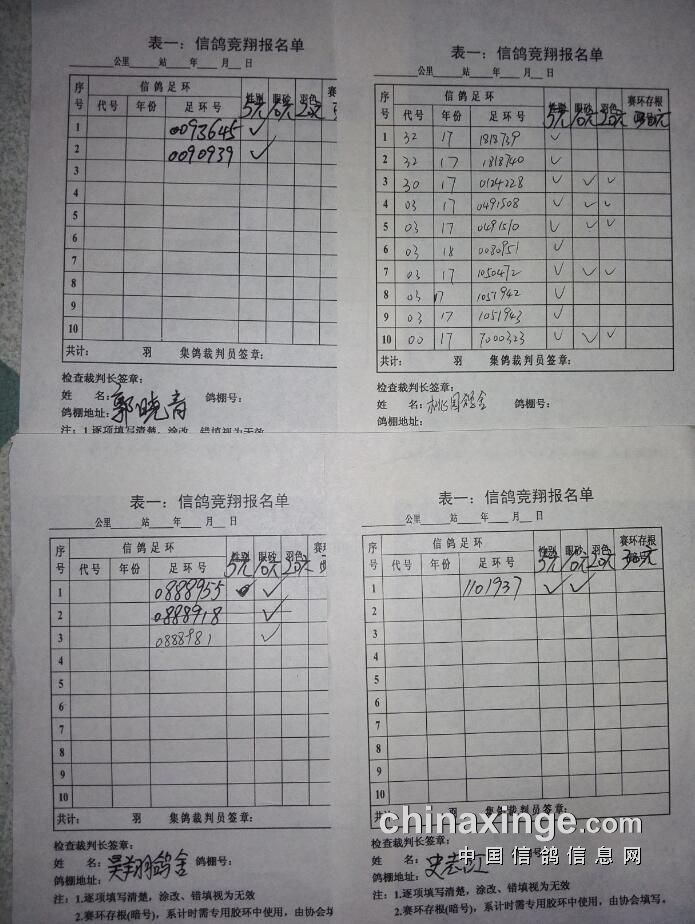 表一：信鸽竞翔报名单
公里 站 年 月 日
序号 信鸽足环 性别 眼砂 羽色
代号 年份 足环号 5元 10元 20元
1 0093645 ✓
2 0090939 ✓
3
4
5
6
7
8
9
10
共计： 羽 集鸽裁判员签章：
检查裁判长签章：
姓 名：郭晓青 鸽棚号：
鸽棚地址：
注：1.逐项填写清楚，涂改、错填视为无效
表一：信鸽竞翔报名单
公里 站 年 月 日
序号 信鸽足环 性别 眼砂 羽色 赛环存根
代号 年份 足环号 5元 10元 20元
1 32 17 1818739 ✓
2 32 17 1818740 ✓
3 30 17 0124228 ✓ ✓ ✓
4 03 17 0491508 ✓ ✓ ✓
5 03 17 0491510 ✓ ✓ ✓
6 03 18 0080951 ✓
7 03 17 1050472 ✓ ✓ ✓
8 03 17 1051942 ✓
9 03 17 1051943 ✓
10 00 17 7000323 ✓ ✓ ✓
共计： 羽 集鸽裁判员签章：
检查裁判长签章：
姓 名： 鸽舍 鸽棚号：
鸽棚地址：
注：1.逐项填写清楚，涂改、错填视为无效
表一：信鸽竞翔报名单
公里 站 年 月 日
序号 信鸽足环 性别 眼砂 羽色 赛环
代号 年份 足环号 5元 10元 20元
1 0888955 ✓
2 0888918 ✓
3 0888981 ✓
4
5
6
7
8
9
10
共计： 羽 集鸽裁判员签章：
检查裁判长签章：
姓 名：昊翔鸽舍 鸽棚号：
鸽棚地址：
注：1.逐项填写清楚，涂改、错填视为无效
2.赛环存根(暗号)，系计时需专用胶环中使用，由协会填
表一：信鸽竞翔报名单
公里 站 年 月 日
序号 信鸽足环 性别 眼砂 羽色 赛环存根
代号 年份 足环号 5元 10元 20元
1 1101937 ✓ ✓
2
3
4
5
6
7
8
9
10
共计： 羽 集鸽裁判员签章：
检查裁判长签章：
姓 名：史志江 鸽棚号：
鸽棚地址：
注：1.逐项填写清楚，涂改、错填视为无效
2.赛环存根(暗号)，系计时需专用胶环中使用，由协会填写。
chinaxinge.com
中国信鸽信息网